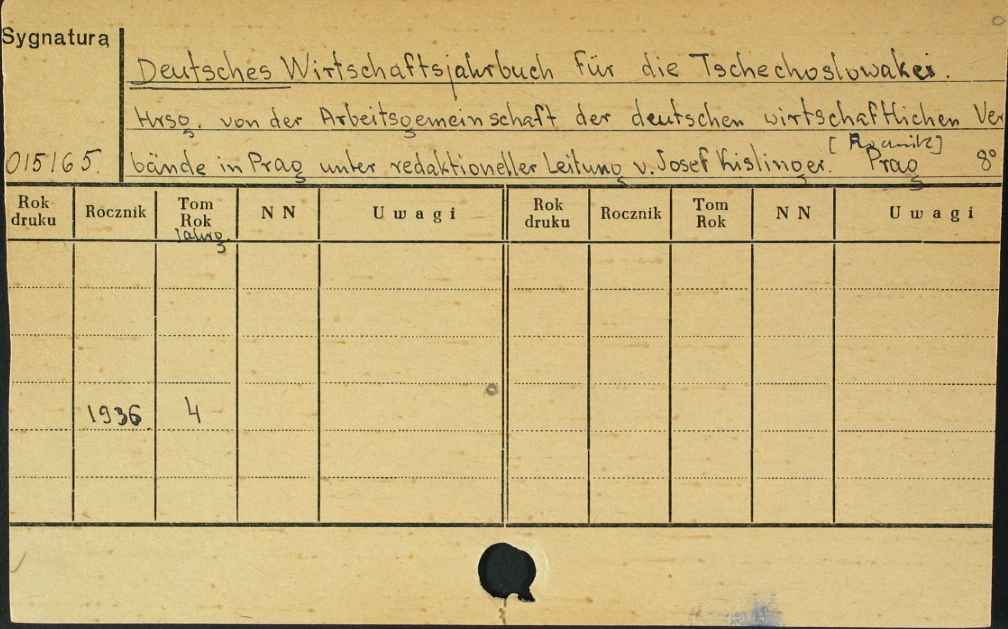 Sygnatura
Deutsches Wirtschaftsjahrbuch für die Tschechoslowakei.
Hrsg. von der Arbeitsgemeinschaft der deutschen wirtschaftlichen Ver
[Rocznik]
015165. bände in Prag unter redaktioneller Leitung v. Josef Kislinger. Prag 8°
Rok druku Rocznik Tom Rok NN Uwagi Rok druku Rocznik Tom Rok NN Uwagi
Jahrg.
1936. 4